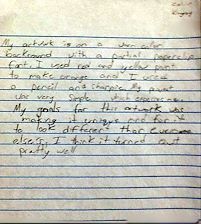 My artwork is on a
background with partial paperclip
I used red and yellow paint
to make orange and I used
a pencil and sharpie. My paint
was very simple
My goals for this artwork was
making it unique and for it
to look different than everyone
else's. I think it turned out
pretty well